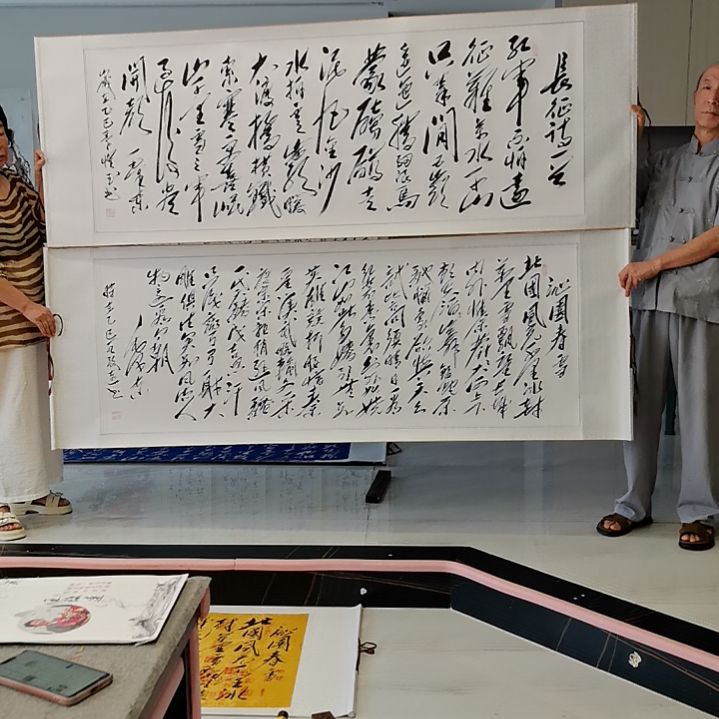 長征詩一首
红軍不怕遠
征難萬水千山
只等閒五嶺
逶迤騰细浪烏
蒙磅礴走
泥丸金沙
水拍雲崖暖
大渡橋横鐵
索寒更喜岷
山千里雪三軍
過後盡
開顏 毛澤東
歲在乙巳年
沁園春雪
北國風光千里冰封
萬里雪飄望長城
内外惟餘莽莽大河上下
頓失滔滔山舞銀蛇原
馳蠟象欲與天公
試比高須晴日看
红装素裹分外妖娆
江山如此多嬌引無數
英雄競折腰惜秦
皇漢武略輸文采
唐宗宋祖稍遜風騷
一代天驕成吉思汗
只識彎弓射大
雕俱往矣數風流人
物還看今朝
沁園春
北國風光